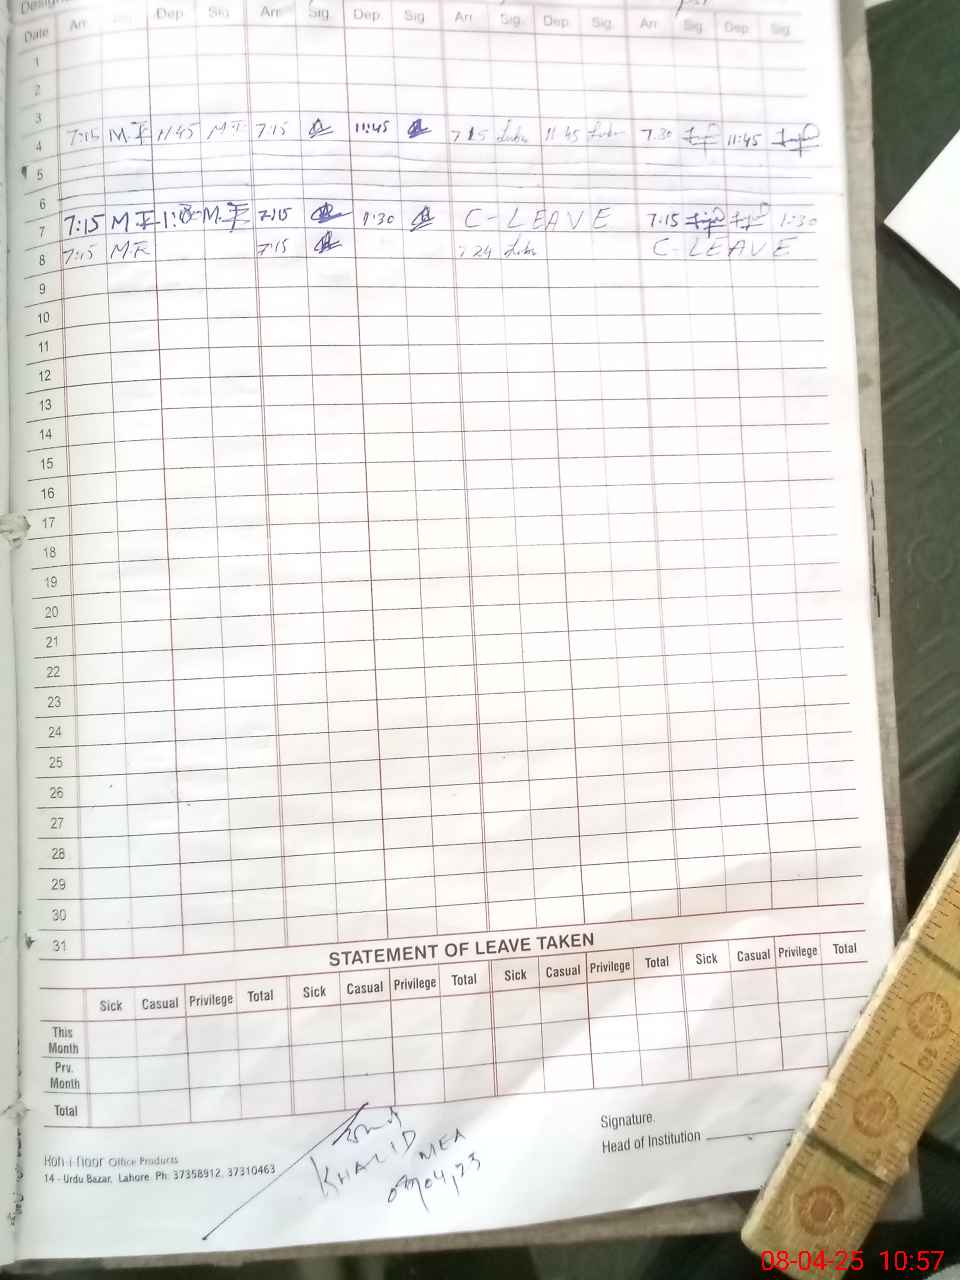 Date Arr. Dep. Sig. Arr. Sig. Dep. Sig. Arr. Sig. Dep. Sig. Arr. Sig. Dep. Sig.
1
2
3
4 7:15 M.I 11:45 M.I 7:15 11:45 7:15 11:45 7:30 11:45
5
6
7 7:15 M.I M.I 7:15 1:30 C-LEAVE 7:15 1:30
8 7:15 7:15 C-LEAVE
9
10
11
12
13
14
15
16
17
18
19
20
21
22
23
24
25
26
27
28
29
30
31
STATEMENT OF LEAVE TAKEN
Sick Casual Privilege Total Sick Casual Privilege Total Sick Casual Privilege Total Sick Casual Privilege Total
This Month
Prv. Month
Total
Signature.
Head of Institution
KHALID
MEA
Koh-i-noor Office Products
14 - Urdu Bazar, Lahore. Ph: 37358912, 37310463
08-04-25 10:57